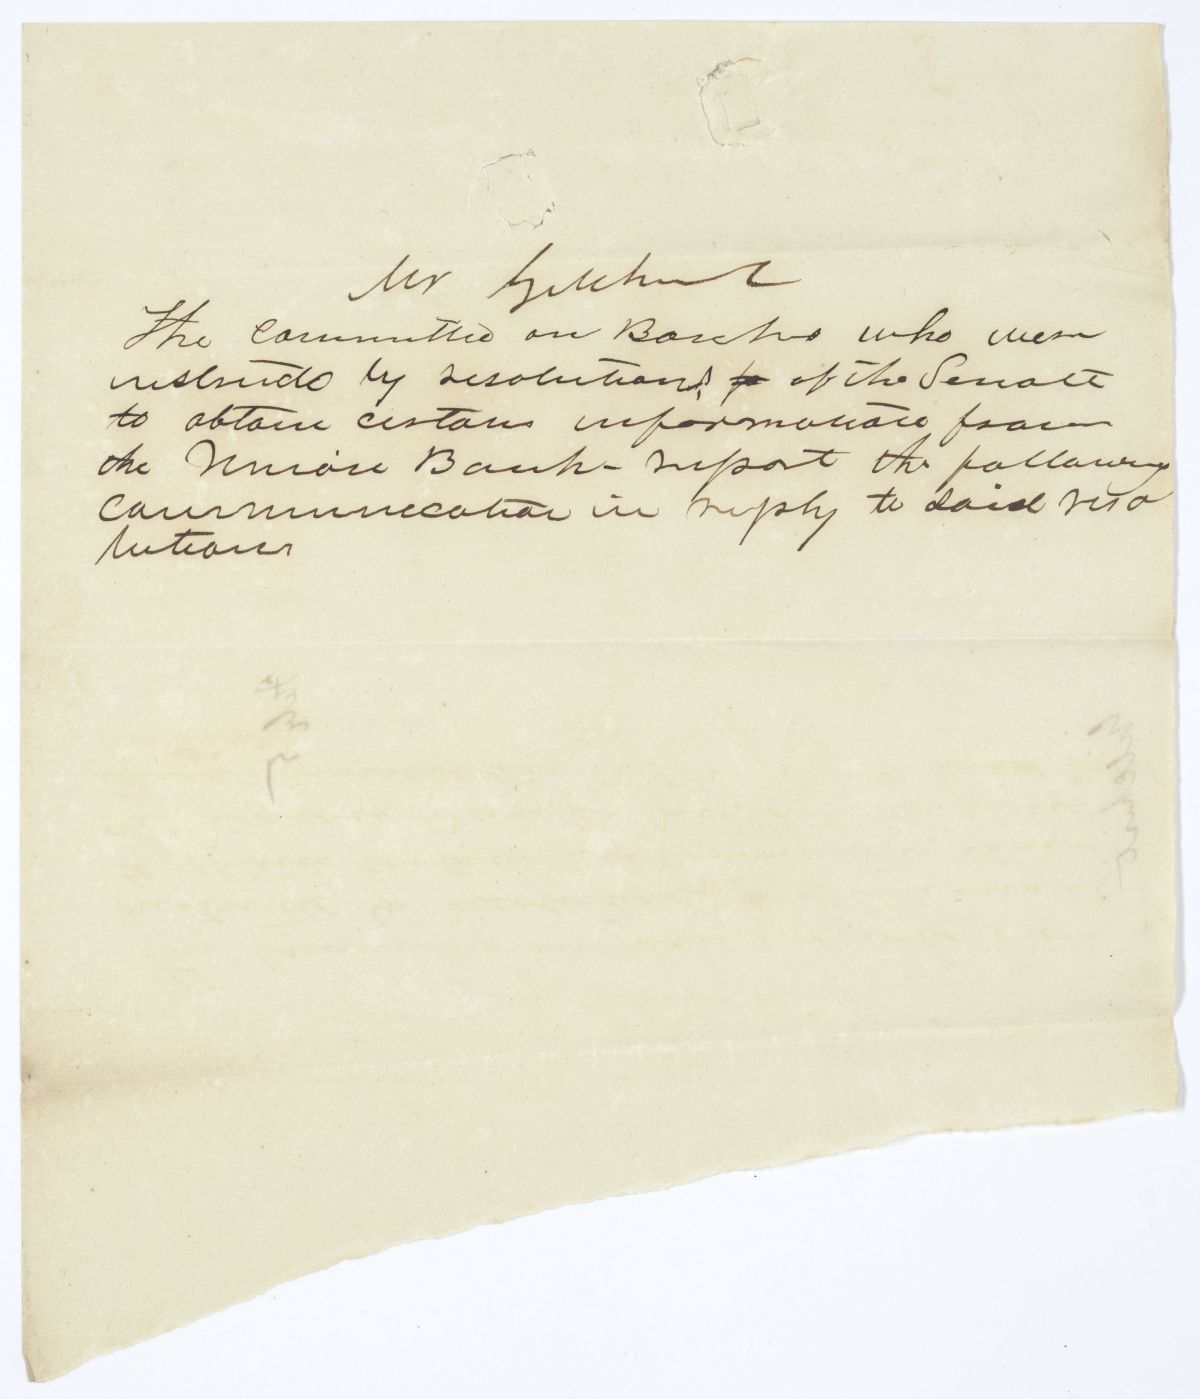 Mr Gilchrist
The Committee on Banks who were
instructed by resolutions of the Senate
to obtain certain information from
the Union Bank - report the following
communication in reply to said reso
lutions